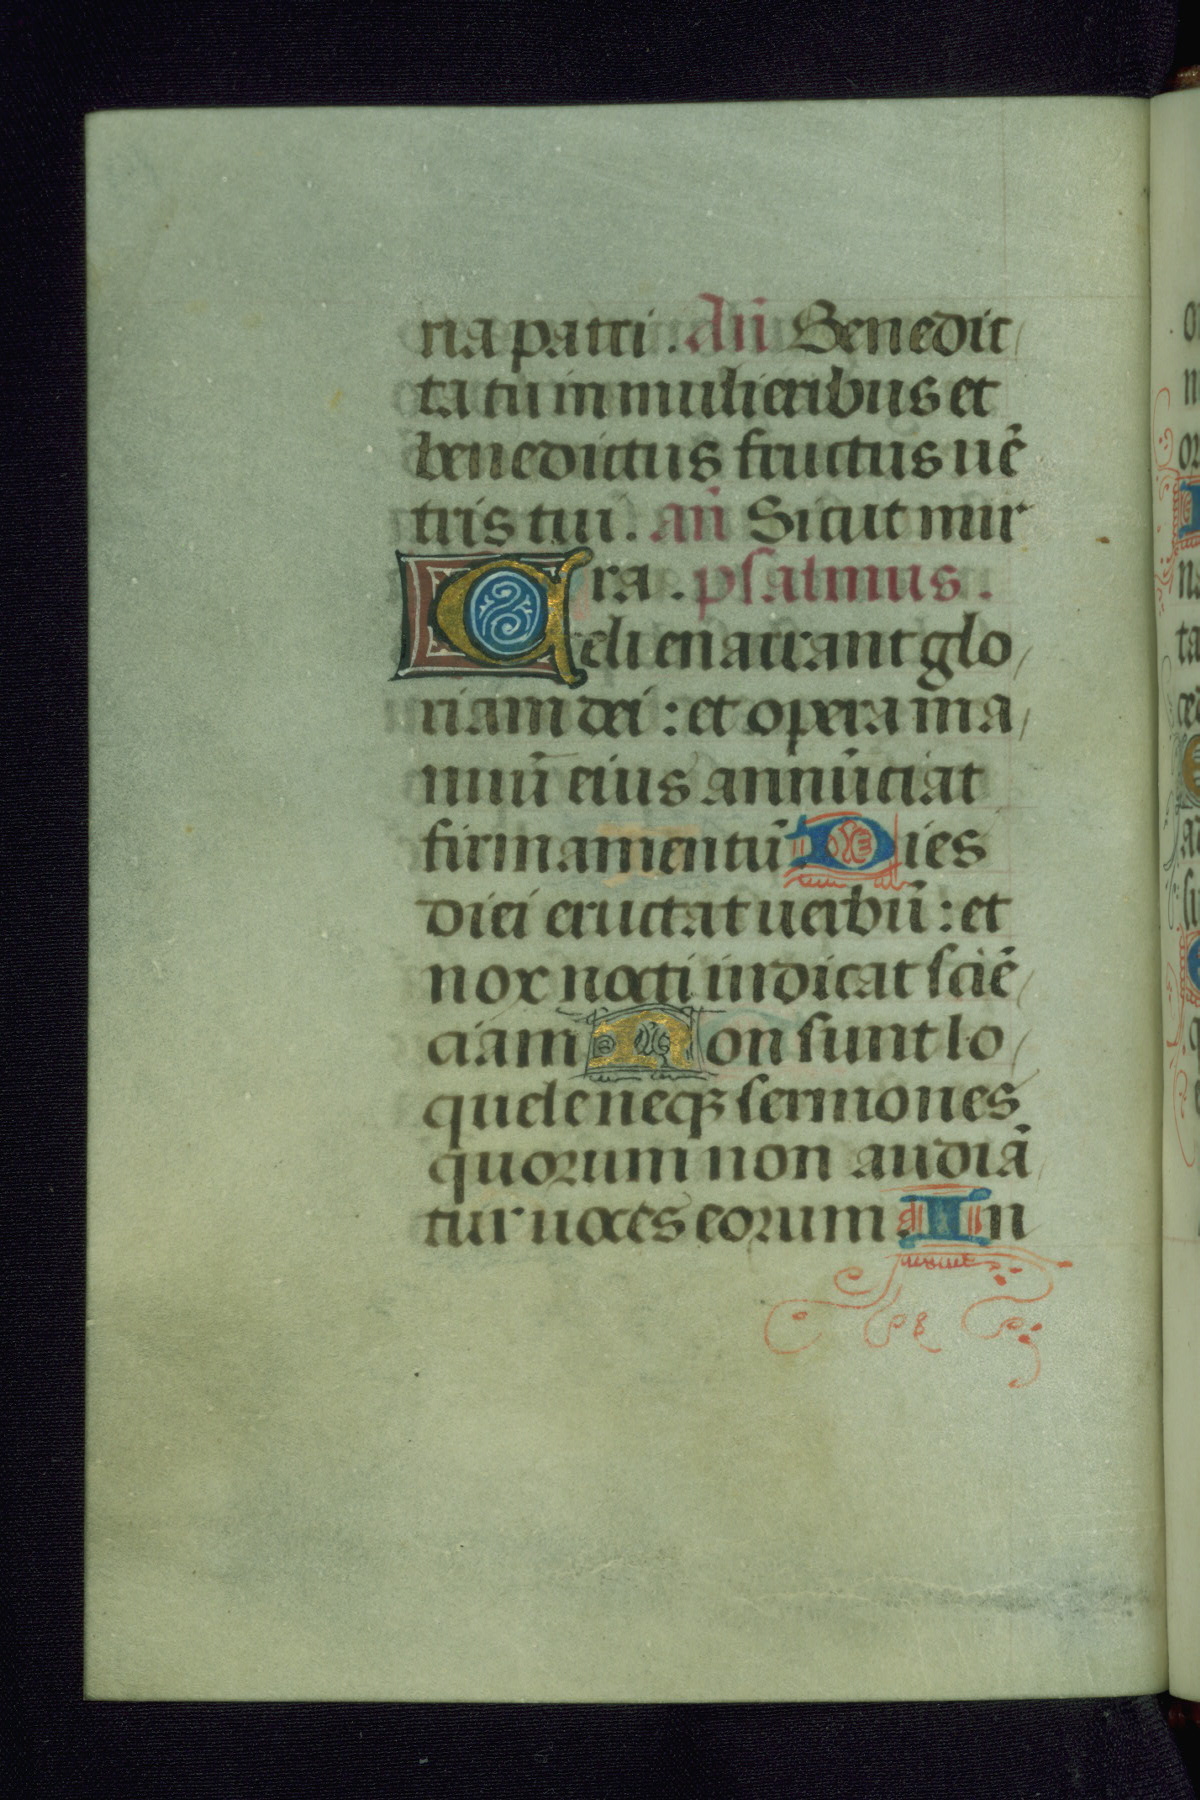 ria patri. Añ Benedic
ta tu in mulieribus et
benedictus fructus uẽ
tris tui. añ Sicut mir
ra. psalmus.
Celi enarrant glo
riam dei: et opera ma
nuũ eius annũciat
firmamentũ Dies
diei eructat uerbũ: et
nox nocti indicat sciẽ
ciam Non sunt lo
quele neqꝫ sermones
quorum non audiã
tur uoces eorum In